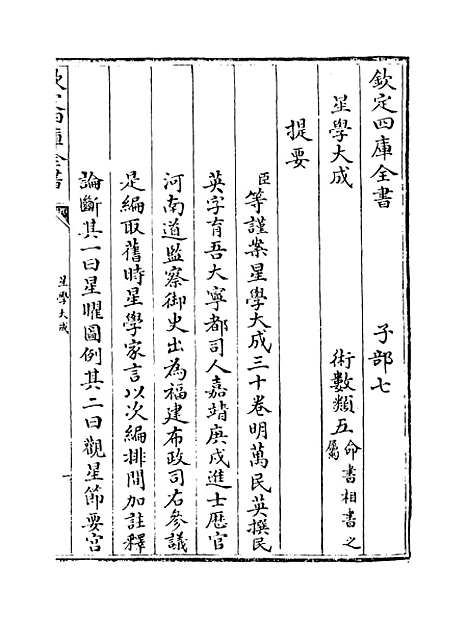 欽定四庫全書　子部七
星學大成　術數類五命書相書之屬
提要
臣等謹案星學大成三十卷明萬民英撰民
英字育吾大寧都司人嘉靖庚戌進士歴官
河南道監察御史出為福建布政司右參議
是編取舊時星學家言以次編排間加註釋
論斷其一曰星曜圖例其二曰觀星節要宫
欽定四庫全書
星學大成
一